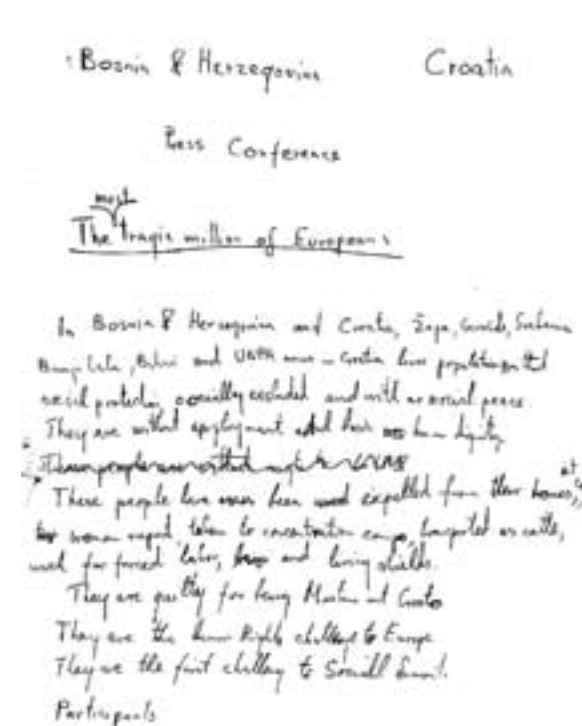 Bosnia & Herzegovina Croatia
Press Conference
most
The tragic million of Europeans
In Bosnia & Herzegovina and Croatia, Žepa, Goražde, Srebrenica
Banja Luka, Bihać and UNPA Croatia lives population
social protection, socially excluded and with no social peace.
They are without employment and have no human dignity
These people are without
These people have been expelled from their homes, at
women raped, taken to concentration camps, transported as cattle,
used for forced labor, and living shields.
They are guilty for being Muslims and Croats
They are the Human Rights challenge to Europe
They are the first challenge to Social Summit.
Participants